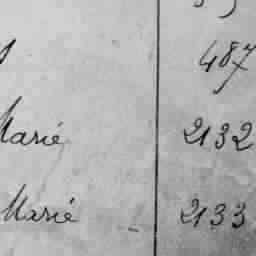 487
Marié 2132
Marié 2133